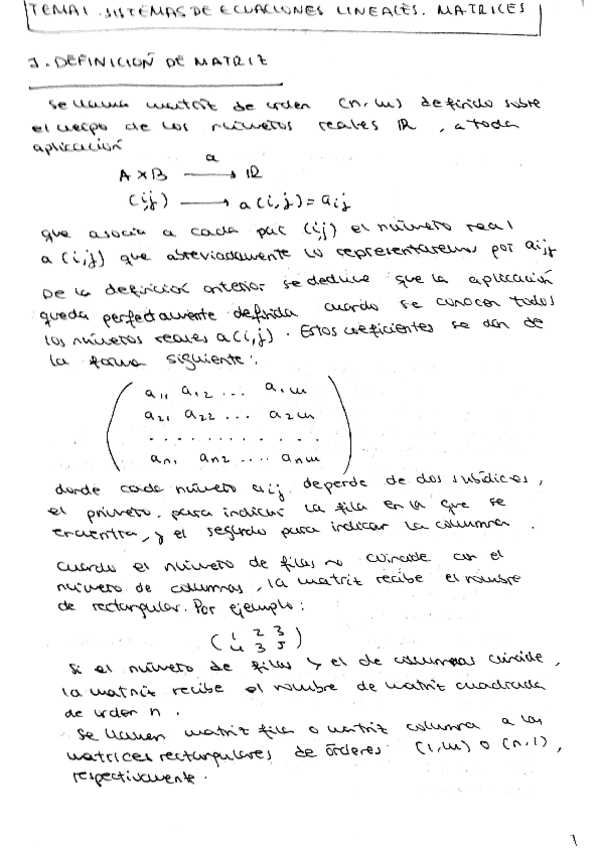 TEMA 1. SISTEMAS DE ECUACIONES LINEALES. MATRICES
1. DEFINICIÓN DE MATRIZ
Se llama matriz de orden (n,m) definido sobre
el cuerpo de los números reales ℝ, a toda
aplicación
A×B —a→ ℝ
(i,j) → a(i,j) = aij
que asocia a cada par (i,j) el número real
a(i,j) que abreviadamente lo representaremos por aij
De la definición anterior se deduce que la aplicación
queda perfectamente definida cuando se conocen todos
los números reales a(i,j). Estos coeficientes se dan de
la forma siguiente:
a11 a12 ... a1m
a21 a22 ... a2m
............
an1 an2 .... anm
donde cada número aij depende de dos subídices,
el primero, para indicar la fila en la que se
encuentra, y el segundo para indicar la columna.
Cuando el número de filas no coincide con el
número de columnas, la matriz recibe el nombre
de rectangular. Por ejemplo:
(1 2 3
4 3 5)
Si el número de filas y el de columnas coincide,
la matriz recibe el nombre de matriz cuadrada
de orden n.
Se llaman matriz fila o matriz columna a las
matrices rectangulares de órdenes (1,m) o (n,1),
respectivamente.
1